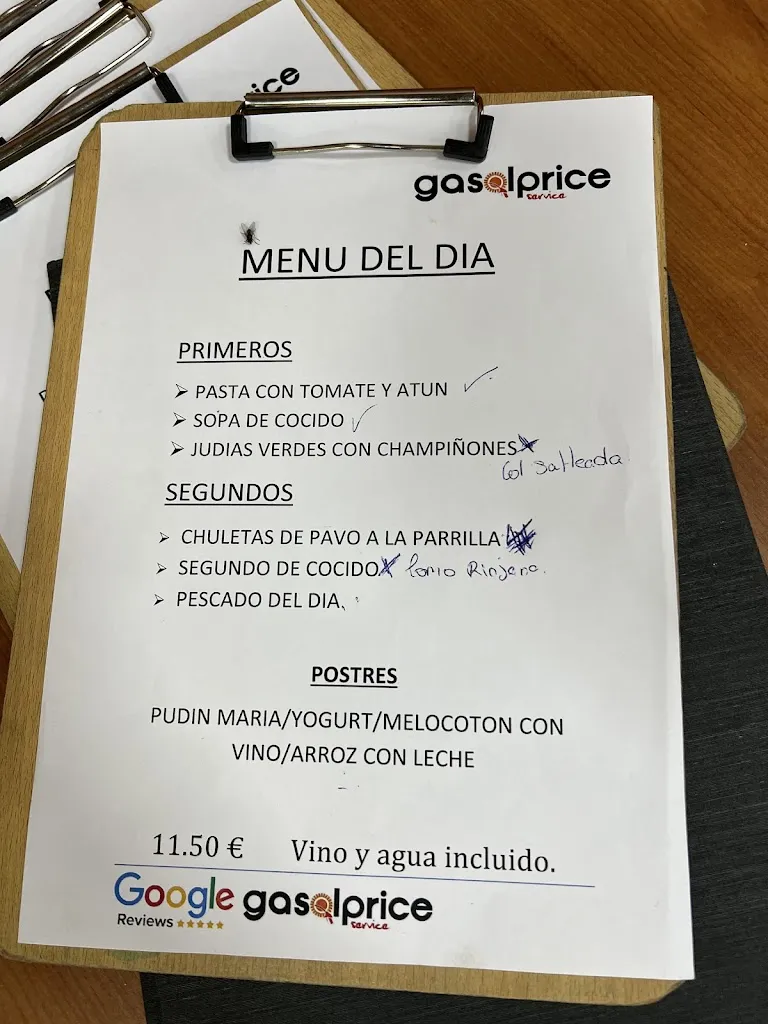 ice
gasolprice
service
MENU DEL DIA
PRIMEROS
PASTA CON TOMATE Y ATUN
SOPA DE COCIDO
JUDIAS VERDES CON CHAMPIÑONES
Col Salteada
SEGUNDOS
CHULETAS DE PAVO A LA PARRILLA
SEGUNDO DE COCIDO lomo
PESCADO DEL DIA
POSTRES
PUDIN MARIA/YOGURT/MELOCOTON CON
VINO/ARROZ CON LECHE
11.50 € Vino y agua incluido.
Google gasolprice
Reviews service